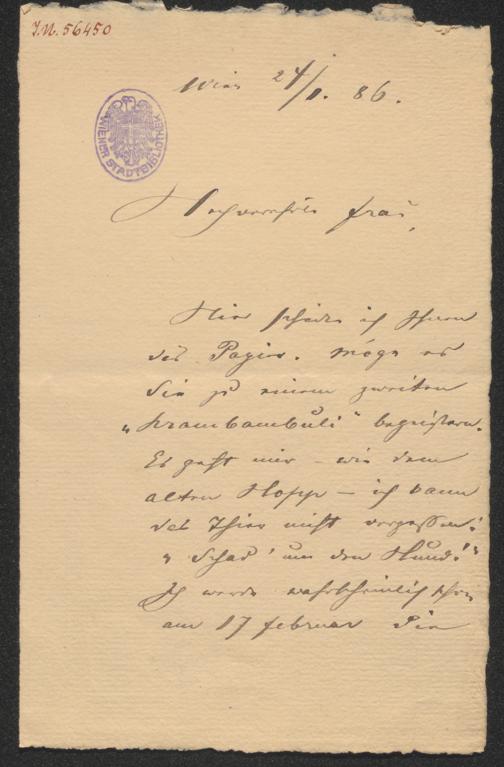 J.N. 56450
Wien 24/1. 86.
WIENER STADTBIBLIOTHEK
Hochverehrte Frau,
Hier schicke ich Ihnen
das Papier. Möge es
Sie zu einem zweiten
„Krambambuli" begeistern.
Es geht mir – wie dem
alten Hopp – ich kann
das Thier nicht vergessen:
„Schad' um den Hund!"
Ich werde wahrscheinlich schon
am 17 Februar die